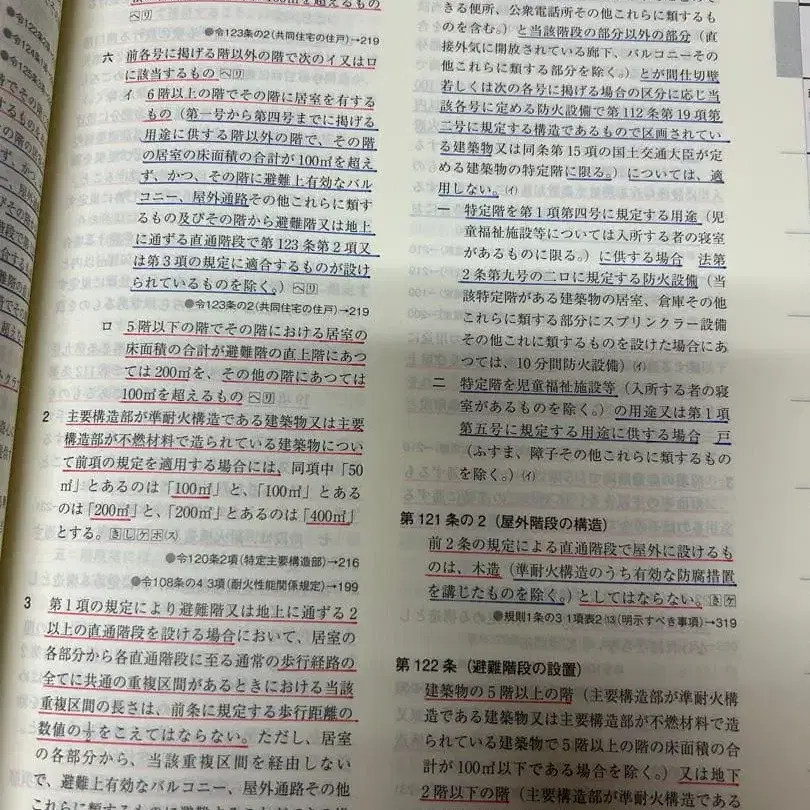 100㎡を超えるもの
ヘリ
●令123条の2(共同住宅の住戸)→219
六 前各号に掲げる階以外の階で次のイ又はロ
に該当するもの ヘリ
イ 6階以上の階でその階に居室を有する
もの(第一号から第四号までに掲げる
用途に供する階以外の階で、その階
の居室の床面積の合計が100㎡を超え
ず、かつ、その階に避難上有効なバル
コニー、屋外通路その他これらに類す
るもの及びその階から避難階又は地上
に通ずる直通階段で第123条第2項又
は第3項の規定に適合するものが設け
られているものを除く。) ヘリ
●令123条の2(共同住宅の住戸)→219
ロ 5階以下の階でその階における居室の
床面積の合計が避難階の直上階にあつ
ては200㎡を、その他の階にあつては
100㎡を超えるもの ヘリ
2 主要構造部が準耐火構造である建築物又は主要
構造部が不燃材料で造られている建築物につい
て前項の規定を適用する場合には、同項中「50
㎡」とあるのは「100㎡」と、「100㎡」とある
のは「200㎡」と、「200㎡」とあるのは「400㎡」
とする。
●令120条2項(特定主要構造部)→216
●令108条の4 3項(耐火性能関係規定)→199
3 第1項の規定により避難階又は地上に通ずる2
以上の直通階段を設ける場合において、居室の
各部分から各直通階段に至る通常の歩行経路の
全てに共通の重複区間があるときにおける当該
重複区間の長さは、前条に規定する歩行距離の
数値の1/2をこえてはならない。ただし、居室
の各部分から、当該重複区間を経由しない
で、避難上有効なバルコニー、屋外通路その他
きる便所、公衆電話所その他これらに類するも
のを含む。)と当該階の部分以外の部分(直
接外気に開放されている廊下、バルコニーその
他これらに類する部分を除く。)とが間仕切壁
若しくは次の各号に掲げる場合の区分に応じ当
該各号に定める防火設備で第112条第19項第
二号に規定する構造であるもので区画されてい
る建築物又は同条第15項の国土交通大臣が定
める建築物の特定階に限る。)については、適
用しない。(イ)
一 特定階を第1項第四号に規定する用途(児
童福祉施設等については入所する者の寝室
があるものに限る。)に供する場合 法第
2条第九号の二ロに規定する防火設備(当
該特定階がある建築物の居室、倉庫その他
これらに類する部分にスプリンクラー設備
その他これに類するものを設けた場合にあ
つては、10分間防火設備)(イ)
二 特定階を児童福祉施設等(入所する者の寝
室があるものを除く。)の用途又は第1項
第五号に規定する用途に供する場合 戸
(ふすま、障子その他これらに類するもの
を除く。)(イ)
第121条の2(屋外階段の構造)
前2条の規定による直通階段で屋外に設けるも
のは、木造(準耐火構造のうち有効な防腐措置
を講じたものを除く。)としてはならない。
●規則1条の3 1項表2⒀(明示すべき事項)→319
第122条(避難階段の設置)
建築物の5階以上の階(主要構造部が準耐火構
造である建築物又は主要構造部が不燃材料で造
られている建築物で5階以上の階の床面積の合
計が100㎡以下である場合を除く。)又は地下
2階以下の階(主要構造部が準耐火構造である